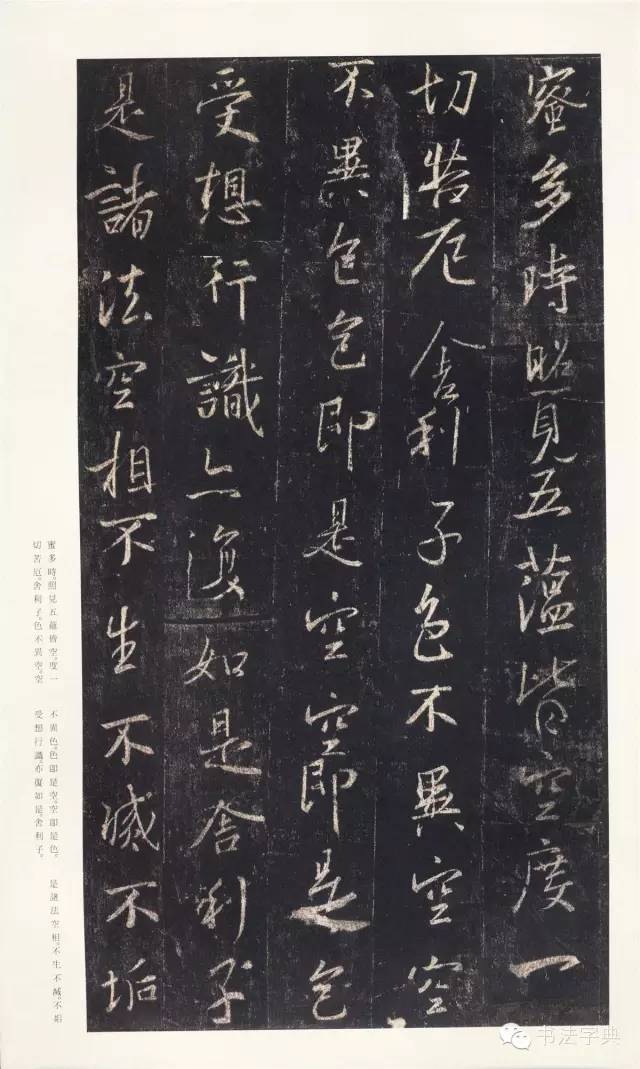 蜜多時照見五蘊皆空度一
切苦厄舍利子色不異空空
不異色色即是空空即是色
受想行識亦復如是舍利子
是諸法空相不生不滅不垢
蜜多時。照見五蘊皆空。度一
切苦厄。舍利子。色不異空。空
不異色。色即是空。空即是色。
受想行識。亦復如是。舍利子。
是諸法空相。不生不滅。不垢
书法字典